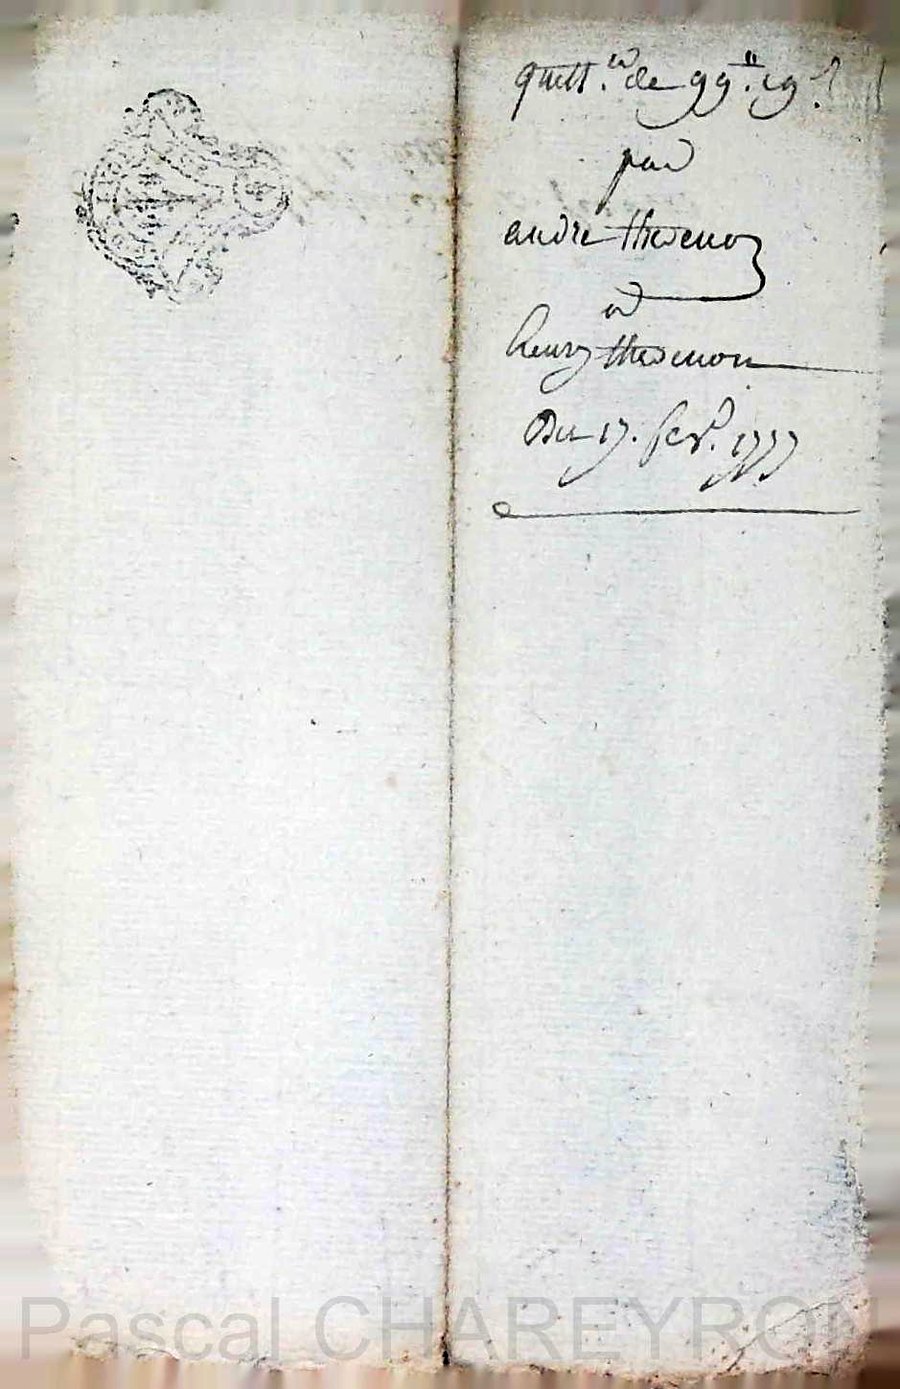 quitt.ce de 99.tt 19.s
par
andre thevenon
a
henry thevenon
Du 17. fev.r 1777
Pascal CHAREYRON